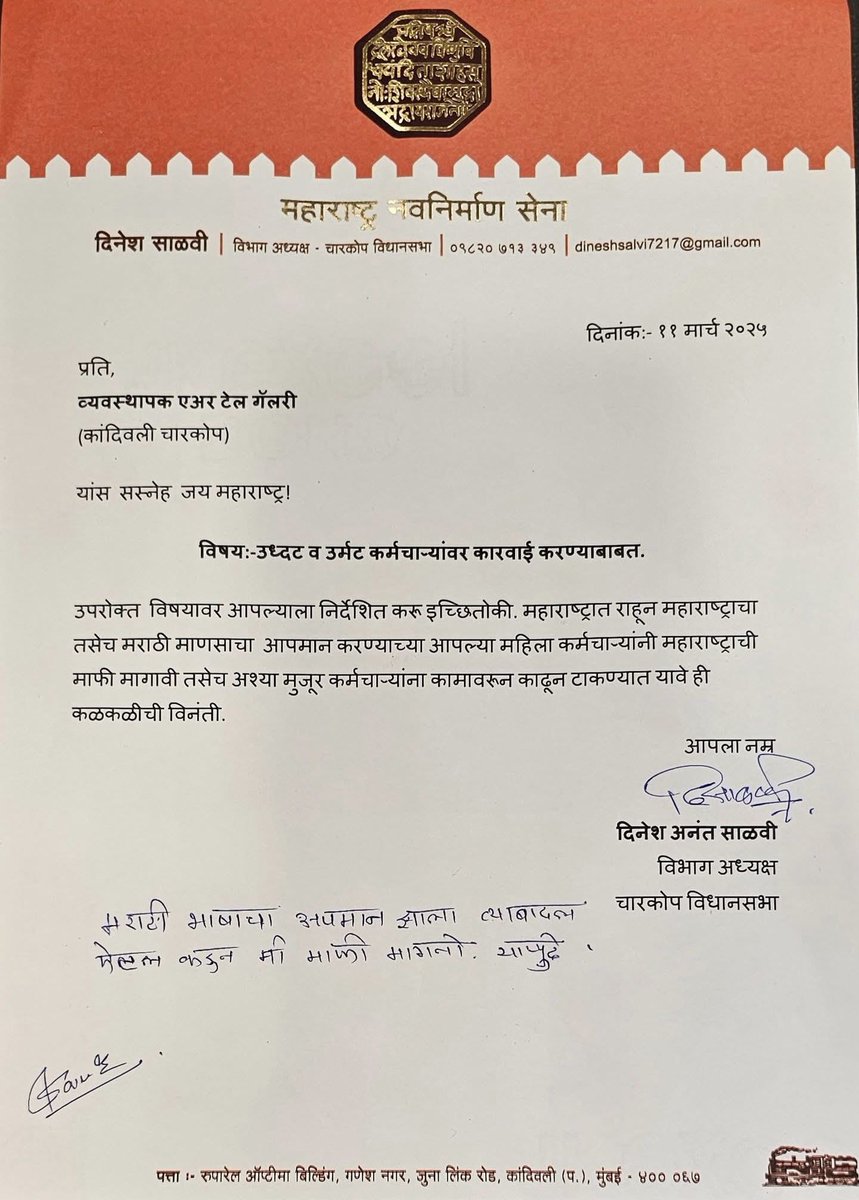 महाराष्ट्र नवनिर्माण सेना
दिनेश साळवी | विभाग अध्यक्ष - चारकोप विधानसभा | ०९८२० ७१३ ३४९ | dineshsalvi7217@gmail.com
दिनांक:- ११ मार्च २०२५
प्रति,
व्यवस्थापक एअर टेल गॅलरी
(कांदिवली चारकोप)
यांस सस्नेह जय महाराष्ट्र!
विषय:-उध्दट व उर्मट कर्मचाऱ्यांवर कारवाई करण्याबाबत.
उपरोक्त विषयावर आपल्याला निर्देशित करू इच्छितोकी. महाराष्ट्रात राहून महाराष्ट्राचा
तसेच मराठी माणसाचा आपमान करण्याच्या आपल्या महिला कर्मचाऱ्यांनी महाराष्ट्राची
माफी मागावी तसेच अश्या मुजूर कर्मचाऱ्यांना कामावरून काढून टाकण्यात यावे ही
कळकळीची विनंती.
आपला नम्र
दिनेश अनंत साळवी
विभाग अध्यक्ष
चारकोप विधानसभा
मराठी भाषाचा अपमान झाला त्याबादल
कडुन मी माफी मागतो. यापुढे .
पत्ता :- रुपारेल ऑप्टीमा बिल्डिंग, गणेश नगर, जुना लिंक रोड, कांदिवली (प.), मुंबई - ४०० ०६७